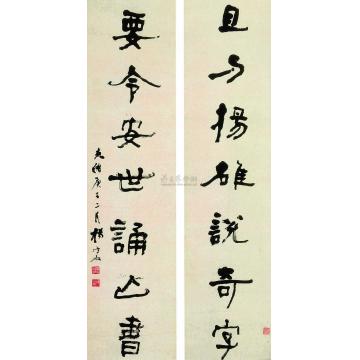 且与揚雄説奇字
要令安世誦亡書
光緒庚子二月楊守敬